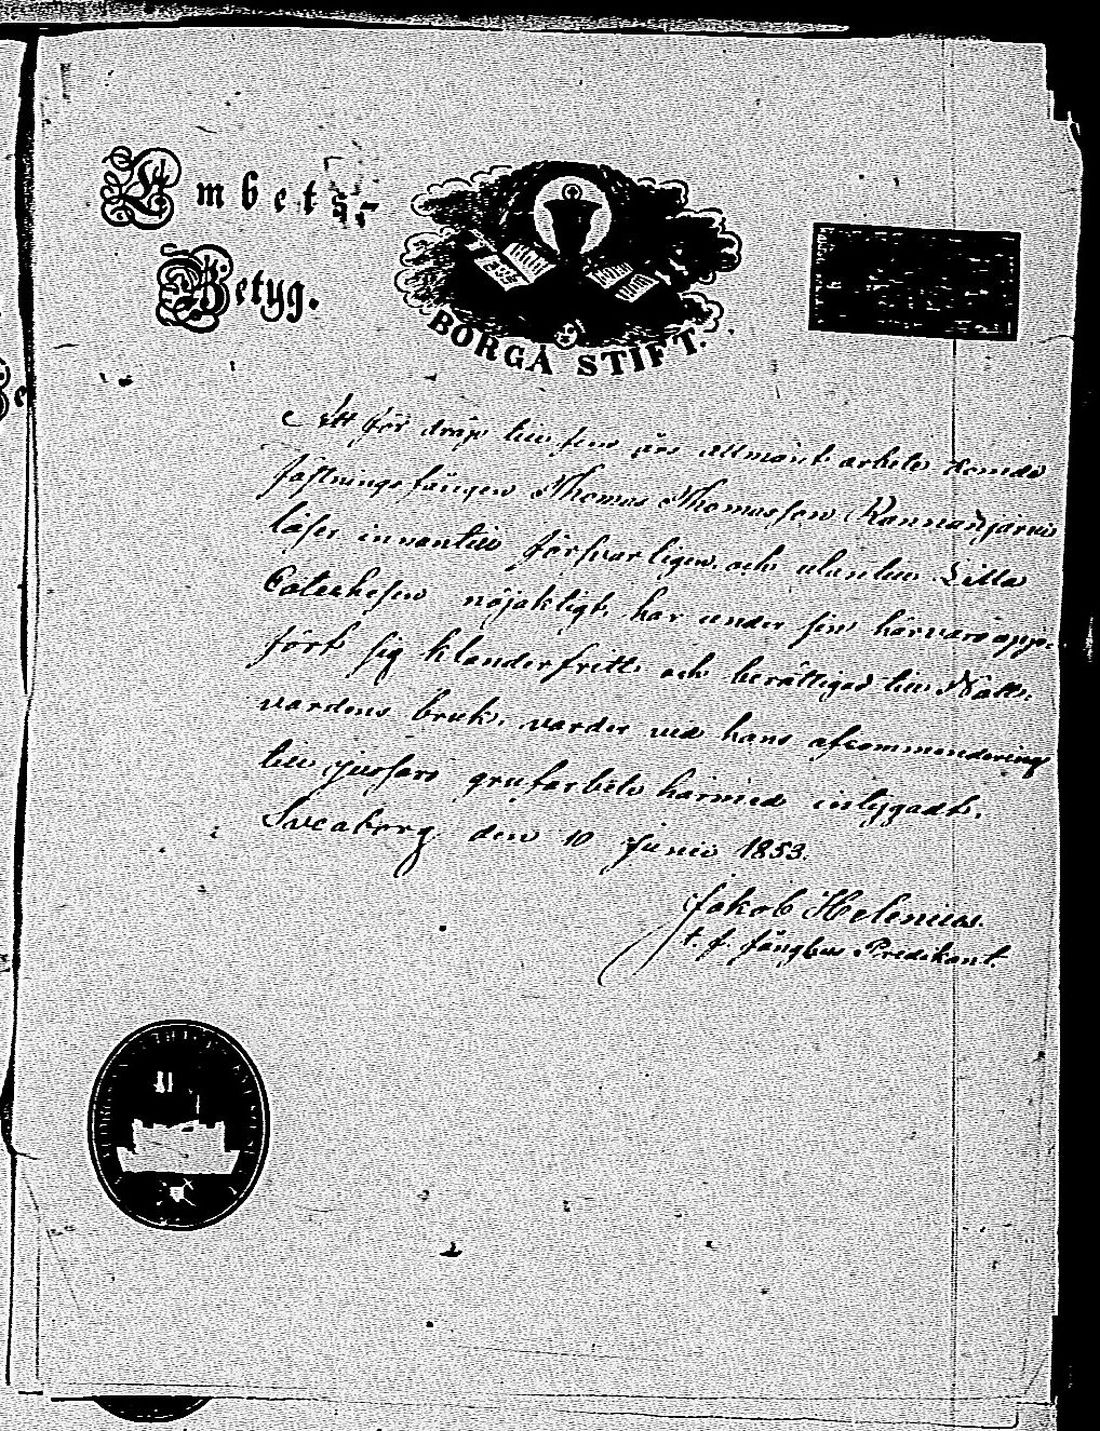 Embets-
Betyg.
BORGÅ STIFT.
Att för dråp till fem års allmänt arbete dömde
fästningsfången Thomas Thomasson Rannanjärvi
läser innantill försvarligen och utantill Lilla
Catechesen nöjaktigt, har under sin härvaro upp-
fört sig klanderfritt och berättigad till Natt-
vardens bruk, varder vid hans afcommendering
till Jussarö grufarbete härmed intygadt.
Sveaborg den 10 Junii 1853.
Jakob Helenius.
t. f. Fängelse Predikant.